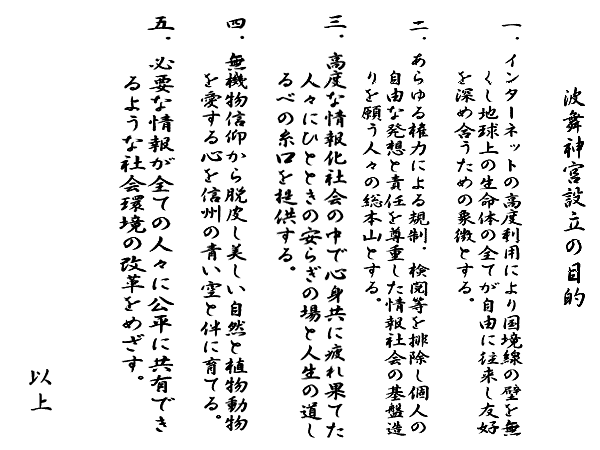 波舞神宮設立の目的
一．インターネットの高度利用により国境線の壁を無
くし地球上の生命体の全てが自由に往来し友好
を深め合うための象徴とする。
二．あらゆる権力による規制．検閲等を排除し個人の
自由な発想と責任を尊重した情報社会の基盤造
りを願う人々の総本山とする。
三．高度な情報化社会の中で心身共に疲れ果てた
人々にひとときの安らぎの場と人生の道し
るべの糸口を提供する。
四．無機物信仰から脱皮し美しい自然と植物動物
を愛する心を信州の青い空と伴に育てる。
五．必要な情報が全ての人々に公平に共有でき
るような社会環境の改革をめざす。
以上